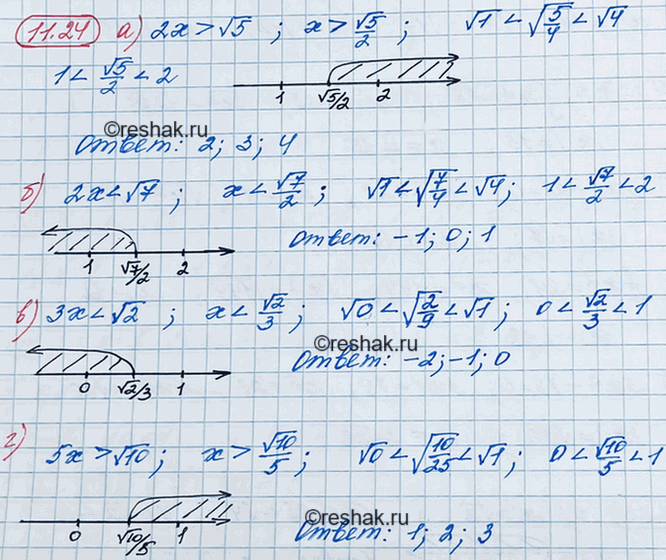 11.24 а) 2x > √5 ; x > √5/2 ; √1 < √(5/4) < √4
1 < √5/2 < 2
1 √5/2 2
©reshak.ru
ответ: 2; 3; 4
б) 2x < √7 ; x < √7/2 ; √1 < √(7/4) < √4; 1 < √7/2 < 2
1 √7/2 2
ответ: -1; 0; 1
в) 3x < √2 ; x < √2/3 ; √0 < √(2/9) < √1 ; 0 < √2/3 < 1
©reshak.ru
0 √2/3 1
ответ: -2; -1; 0
г) 5x > √10; x > √10/5 ; √0 < √(10/25) < √1; 0 < √10/5 < 1
0 √10/5 1
©reshak.ru
ответ: 1; 2; 3